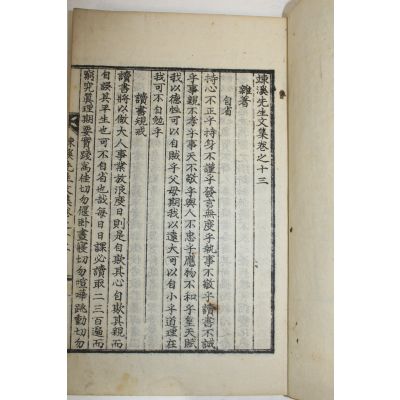 竦溪先生文集卷之十三
雜著
自省
持心不正乎持身不謹乎發言無度乎執事不敬乎讀書不誠
乎事親不孝乎事天不敬乎與人不忠乎應物不和乎皇天賦
我以德性可以自賊乎父母期我以遠大可以自小乎道理在
我可不自勉乎
讀書規戒
讀書將以做大人事業放浪度日則是自欺其心自欺其親而
自誤其平生也可不自省也哉每日日課必讀取二三百遍而
窮究眞理期要實踐高在切勿偃卧晝寢切勿喧嘩跳動切勿
溪先生文集卷之十三